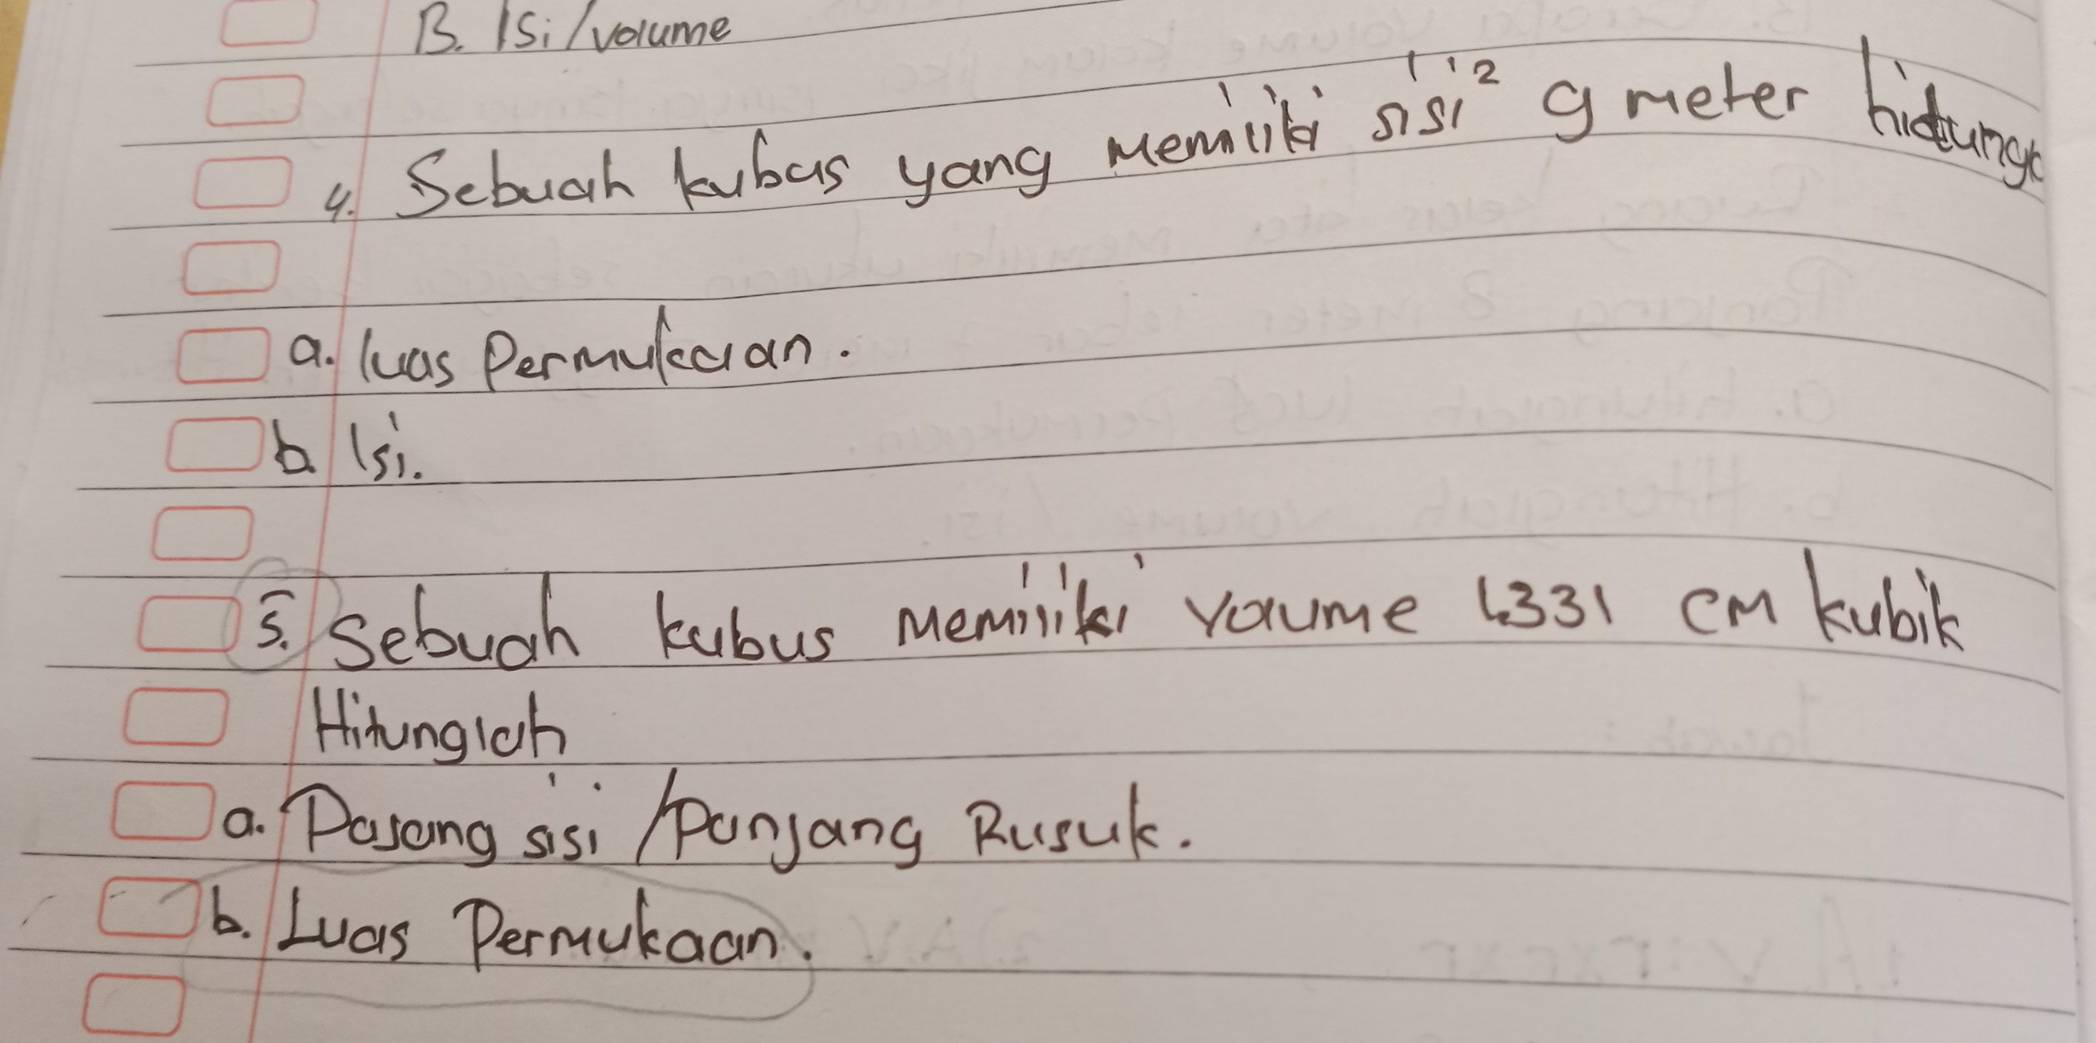 B. Isi/volume
4. Sebuah kubas yang memiliki sisi² 9 meter hidtungt
a. luas Permukaan.
b. Isi.
5. Sebuah kubus memiliki voume 1.331 cm kubik
Hitunglah
a. Pasang sisi / Panjang Rusuk.
b. Luas Permukaan.